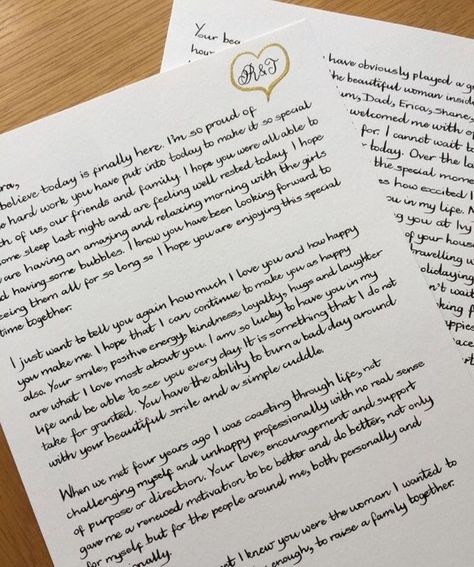 R&J
ra,
believe today is finally here. I'm so proud of
hard work you have put into today to make it so special
th of us, our friends and family. I hope you were all able to
some sleep last night and are feeling well rested today. I hope
are having an amazing and relaxing morning with the girls
d having some bubbles. I know you have been looking forward to
seeing them all for so long so I hope you are enjoying this special
time together.
I just want to tell you again how much I love you and how happy
you make me. I hope that I can continue to make you as happy
also. Your smile, positive energy, kindness, loyalty, hugs and laughter
are what I love most about you. I am so lucky to have you in my
life and be able to see you every day. It is something that I do not
take for granted. You have the ability to turn a bad day around
with your beautiful smile and a simple cuddle.
When we met four years ago I was coasting through life, not
challenging myself and unhappy professionally with no real sense
of purpose or direction. Your love, encouragement and support
gave me a renewed motivation to be better and do better, not only
for myself but for the people around me, both personally and
ionally.
t I knew you were the woman I wanted to
enough, to raise a family together.
Your bea
hour
have obviously played a g
the beautiful woman insid
um, Dad, Erica, Shane,
welcomed me with op
for. I cannot wait to
today. Over the la
the special mome
es how excited I
you in my life. N
ng you at Ivy
of your hous
travelling w
olidaying
n't wait
king f
ppines
s.
ng
es